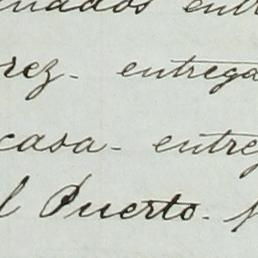 nados entr
rez - entrega
casa - entre
l Puerto -